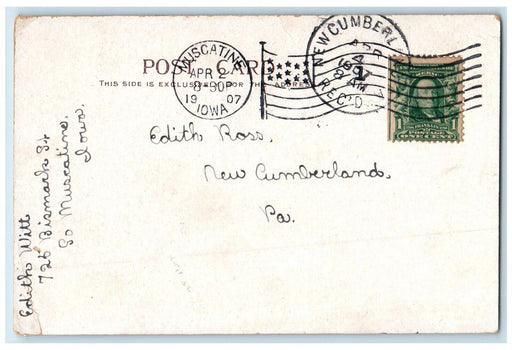 POST CARD
THIS SIDE IS EXCLUSIVELY FOR THE ADDRESS
MUSCATINE
APR 2
8-30P
1907
IOWA
NEW CUMBERL
APR
4
1907
8 AM
REC'D.
POSTAGE
ONE CENT
Edith Ross.
New Cumberland,
Pa.
Edith Witt
726 Bismark St
So Muscatine.
Iowa.